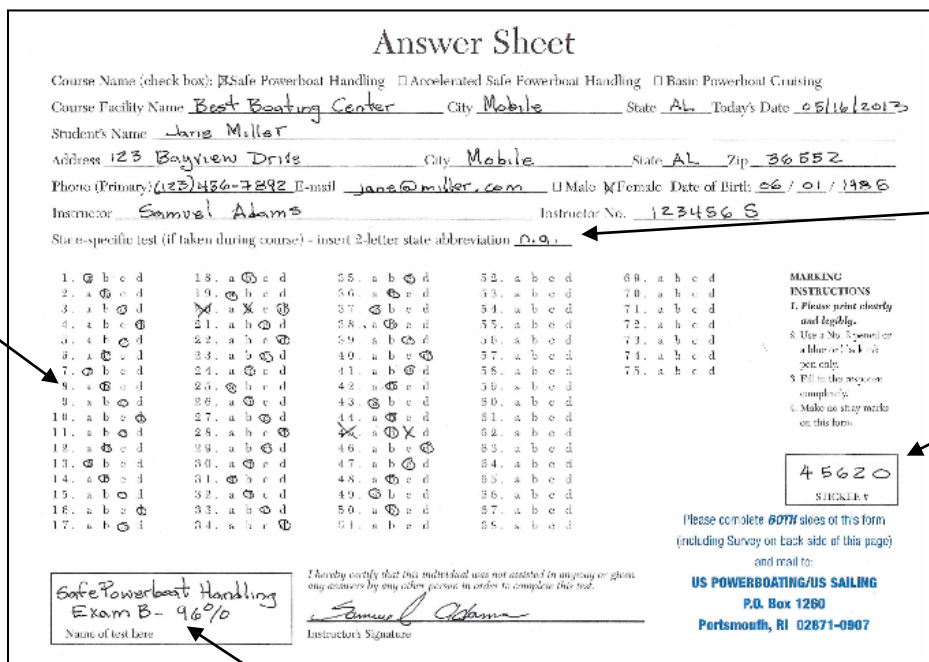 Answer Sheet
Course Name (check box): ☒Safe Powerboat Handling ☐Accelerated Safe Powerboat Handling ☐Basic Powerboat Cruising
Course Facility Name Best Boating Center City Mobile State AL Today's Date 05/16/2013
Student's Name Jane Miller
Address 123 Bayview Drive City Mobile State AL Zip 36552
Phone (Primary) (123)436-7892 E-mail jane@miller.com ☐Male ☒Female Date of Birth 06 / 01 / 1985
Instructor Samuel Adams Instructor No. 123456 S
State-specific test (if taken during course) - insert 2-letter state abbreviation n.a.
1. a b c d 18. a b c d 35. a b c d 52. a b c d 69. a b c d
2. a b c d 19. a b c d 36. a b c d 53. a b c d 70. a b c d
3. a b c d 20. a b c d 37. a b c d 54. a b c d 71. a b c d
4. a b c d 21. a b c d 38. a b c d 55. a b c d 72. a b c d
5. a b c d 22. a b c d 39. a b c d 56. a b c d 73. a b c d
6. a b c d 23. a b c d 40. a b c d 57. a b c d 74. a b c d
7. a b c d 24. a b c d 41. a b c d 58. a b c d 75. a b c d
8. a b c d 25. a b c d 42. a b c d 59. a b c d
9. a b c d 26. a b c d 43. a b c d 60. a b c d
10. a b c d 27. a b c d 44. a b c d 61. a b c d
11. a b c d 28. a b c d 45. a b c d 62. a b c d
12. a b c d 29. a b c d 46. a b c d 63. a b c d
13. a b c d 30. a b c d 47. a b c d 64. a b c d
14. a b c d 31. a b c d 48. a b c d 65. a b c d
15. a b c d 32. a b c d 49. a b c d 66. a b c d
16. a b c d 33. a b c d 50. a b c d 67. a b c d
17. a b c d 34. a b c d 51. a b c d 68. a b c d
MARKING
INSTRUCTIONS
1. Please print clearly
and legibly.
2. Use a No. 2 pencil or
a blue or black ink
pen only.
3. Fill in the response
completely.
4. Make no stray marks
on this form.
45620
STICKER #
Please complete BOTH sides of this form
(including Survey on back side of this page)
and mail to:
US POWERBOATING/US SAILING
P.O. Box 1260
Portsmouth, RI 02871-0907
Safe Powerboat Handling
Exam B- 96%
Name of test here
I hereby certify that this individual was not assisted in anyway or given
any answers by any other person in order to complete this test.
Samuel Adams
Instructor's Signature